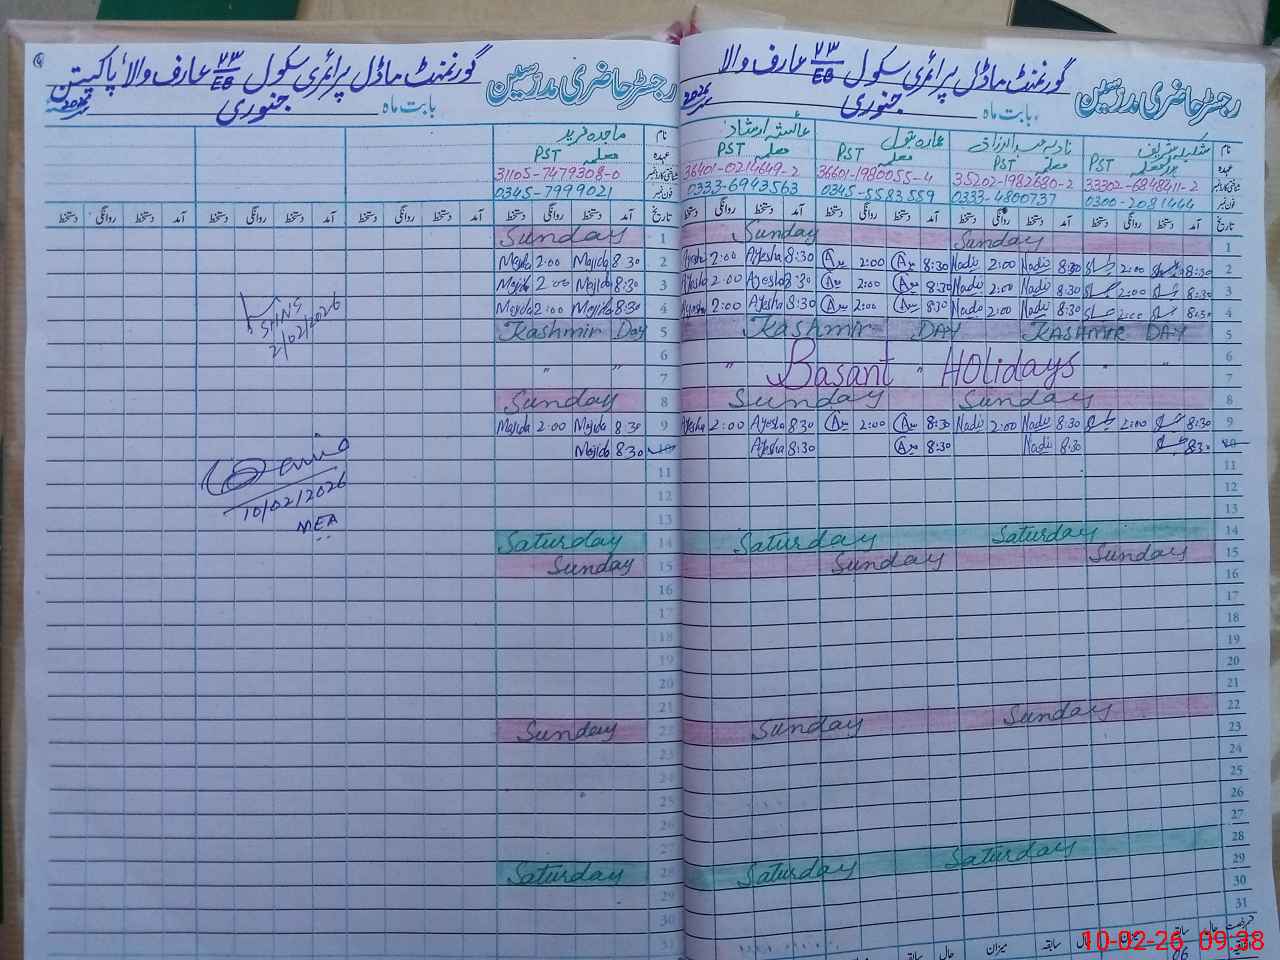 رجسٹر حاضری مدرسین گورنمنٹ ماڈل پرائمری سکول ۷۳/EB عارف والا
بابت ماہ جنوری 2026
نام عائشہ ارشاد
عہدہ PST معلمہ PST معلمہ PST معلمہ PST
شناختی کارڈ نمبر 33302-6848411-2 35202-1982680-2 36601-1980055-4 36401-0214649-2
فون نمبر 0300-2081444 0333-4800737 0345-5583559 0333-6943563
تاریخ آمد دستخط روانگی دستخط آمد دستخط روانگی دستخط آمد دستخط روانگی دستخط آمد دستخط روانگی دستخط
Sunday Sunday 1
Ayesha 2:00 Ayesha 8:30 2:00 8:30 Nadia 2:00 Nadia 8:30 2:00 8:30 2
Ayesha 2:00 Ayesha 8:30 2:00 8:30 Nadia 2:00 Nadia 8:30 2:00 8:30 3
Ayesha 2:00 Ayesha 8:30 2:00 8:30 Nadia 2:00 Nadia 8:30 2:00 8:30 4
Kashmir DAY KASHMIR DAY 5
6
" Basant " HOlidays " " 7
Sunday Sunday 8
Ayesha 2:00 Ayesha 8:30 2:00 8:30 Nadia 2:00 Nadia 8:30 2:00 8:30 9
Ayesha 8:30 8:30 Nadia 8:30 8:30 10
11
12
13
Saturday Saturday 14
Sunday Sunday 15
16
17
18
19
20
21
Sunday Sunday 22
23
24
25
26
27
Saturday Saturday 28
29
30
31
میزان سابقہ حال میزان سابقہ حال
رجسٹر حاضری مدرسین گورنمنٹ ماڈل پرائمری سکول ۷۳/EB عارف والا پاکپتن
بابت ماہ جنوری 2026
نام ماجدہ فرید
عہدہ معلمہ PST
شناختی کارڈ نمبر 31105-7479308-0
فون نمبر 0345-7999021
تاریخ آمد دستخط روانگی دستخط آمد دستخط روانگی دستخط آمد دستخط روانگی دستخط آمد دستخط روانگی دستخط
Sunday 1
Majida 2:00 Majida 8:30 2
Majida 2:00 Majida 8:30 3
Majida 2:00 Majida 8:30 4
Kashmir Day 5
6
" " 7
Sunday 8
Majida 2:00 Majida 8:30 9
Majida 8:30 10
11
12
13
Saturday 14
Sunday 15
16
17
18
19
20
21
Sunday 22
23
24
25
26
27
Saturday 28
29
30
31
SHNS
2/02/2026
10/02/2026
MEA
10-02-26 09:38